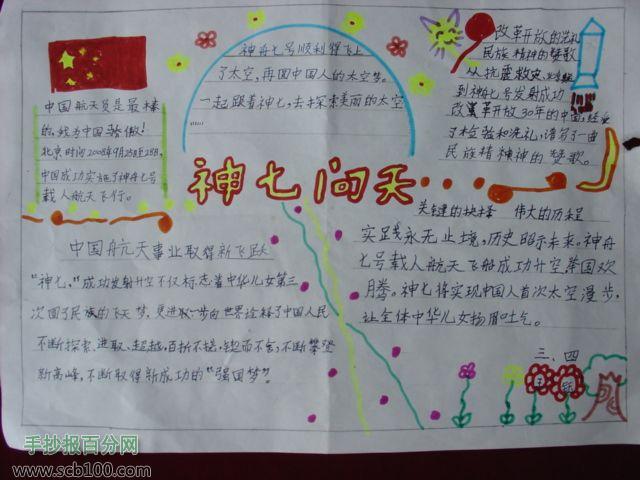 神舟七号顺利得飞上
了太空,再圆中国人的太空梦。
一起跟着神七,去探索美丽的太空
吧!
中国航天员是最棒
的,我为中国骄傲!
北京时间2008年9月25日至28日,
中国成功实施了神舟七号
载人航天飞行。
改革开放的洗礼
民族精神的赞歌
从抗震救灾,
到神舟七号发射成功
改革革开放30年的中国,经受
了检验和洗礼,谱写了一曲
民族精神神的赞歌。
神七问天
中国航天事业取得新飞跃
"神七,"成功发射升空不仅标志着中华儿女第三
次圆了民族的飞天梦,更进取一步向世界诠释了中国人民
不断探索、进取、超越,百折不挠,锲而不舍,不断攀登
新高峰,不断取得新成功的"强国梦"。
关键的抉择 伟大的历程
实践永无止境,历史昭示未来。神舟
七号载人航天飞船成功升空举国欢
腾。神七将实现中国人首次太空漫步,
让全体中华儿女扬眉吐气。
三、四
手抄报百分网
www.scb100.com